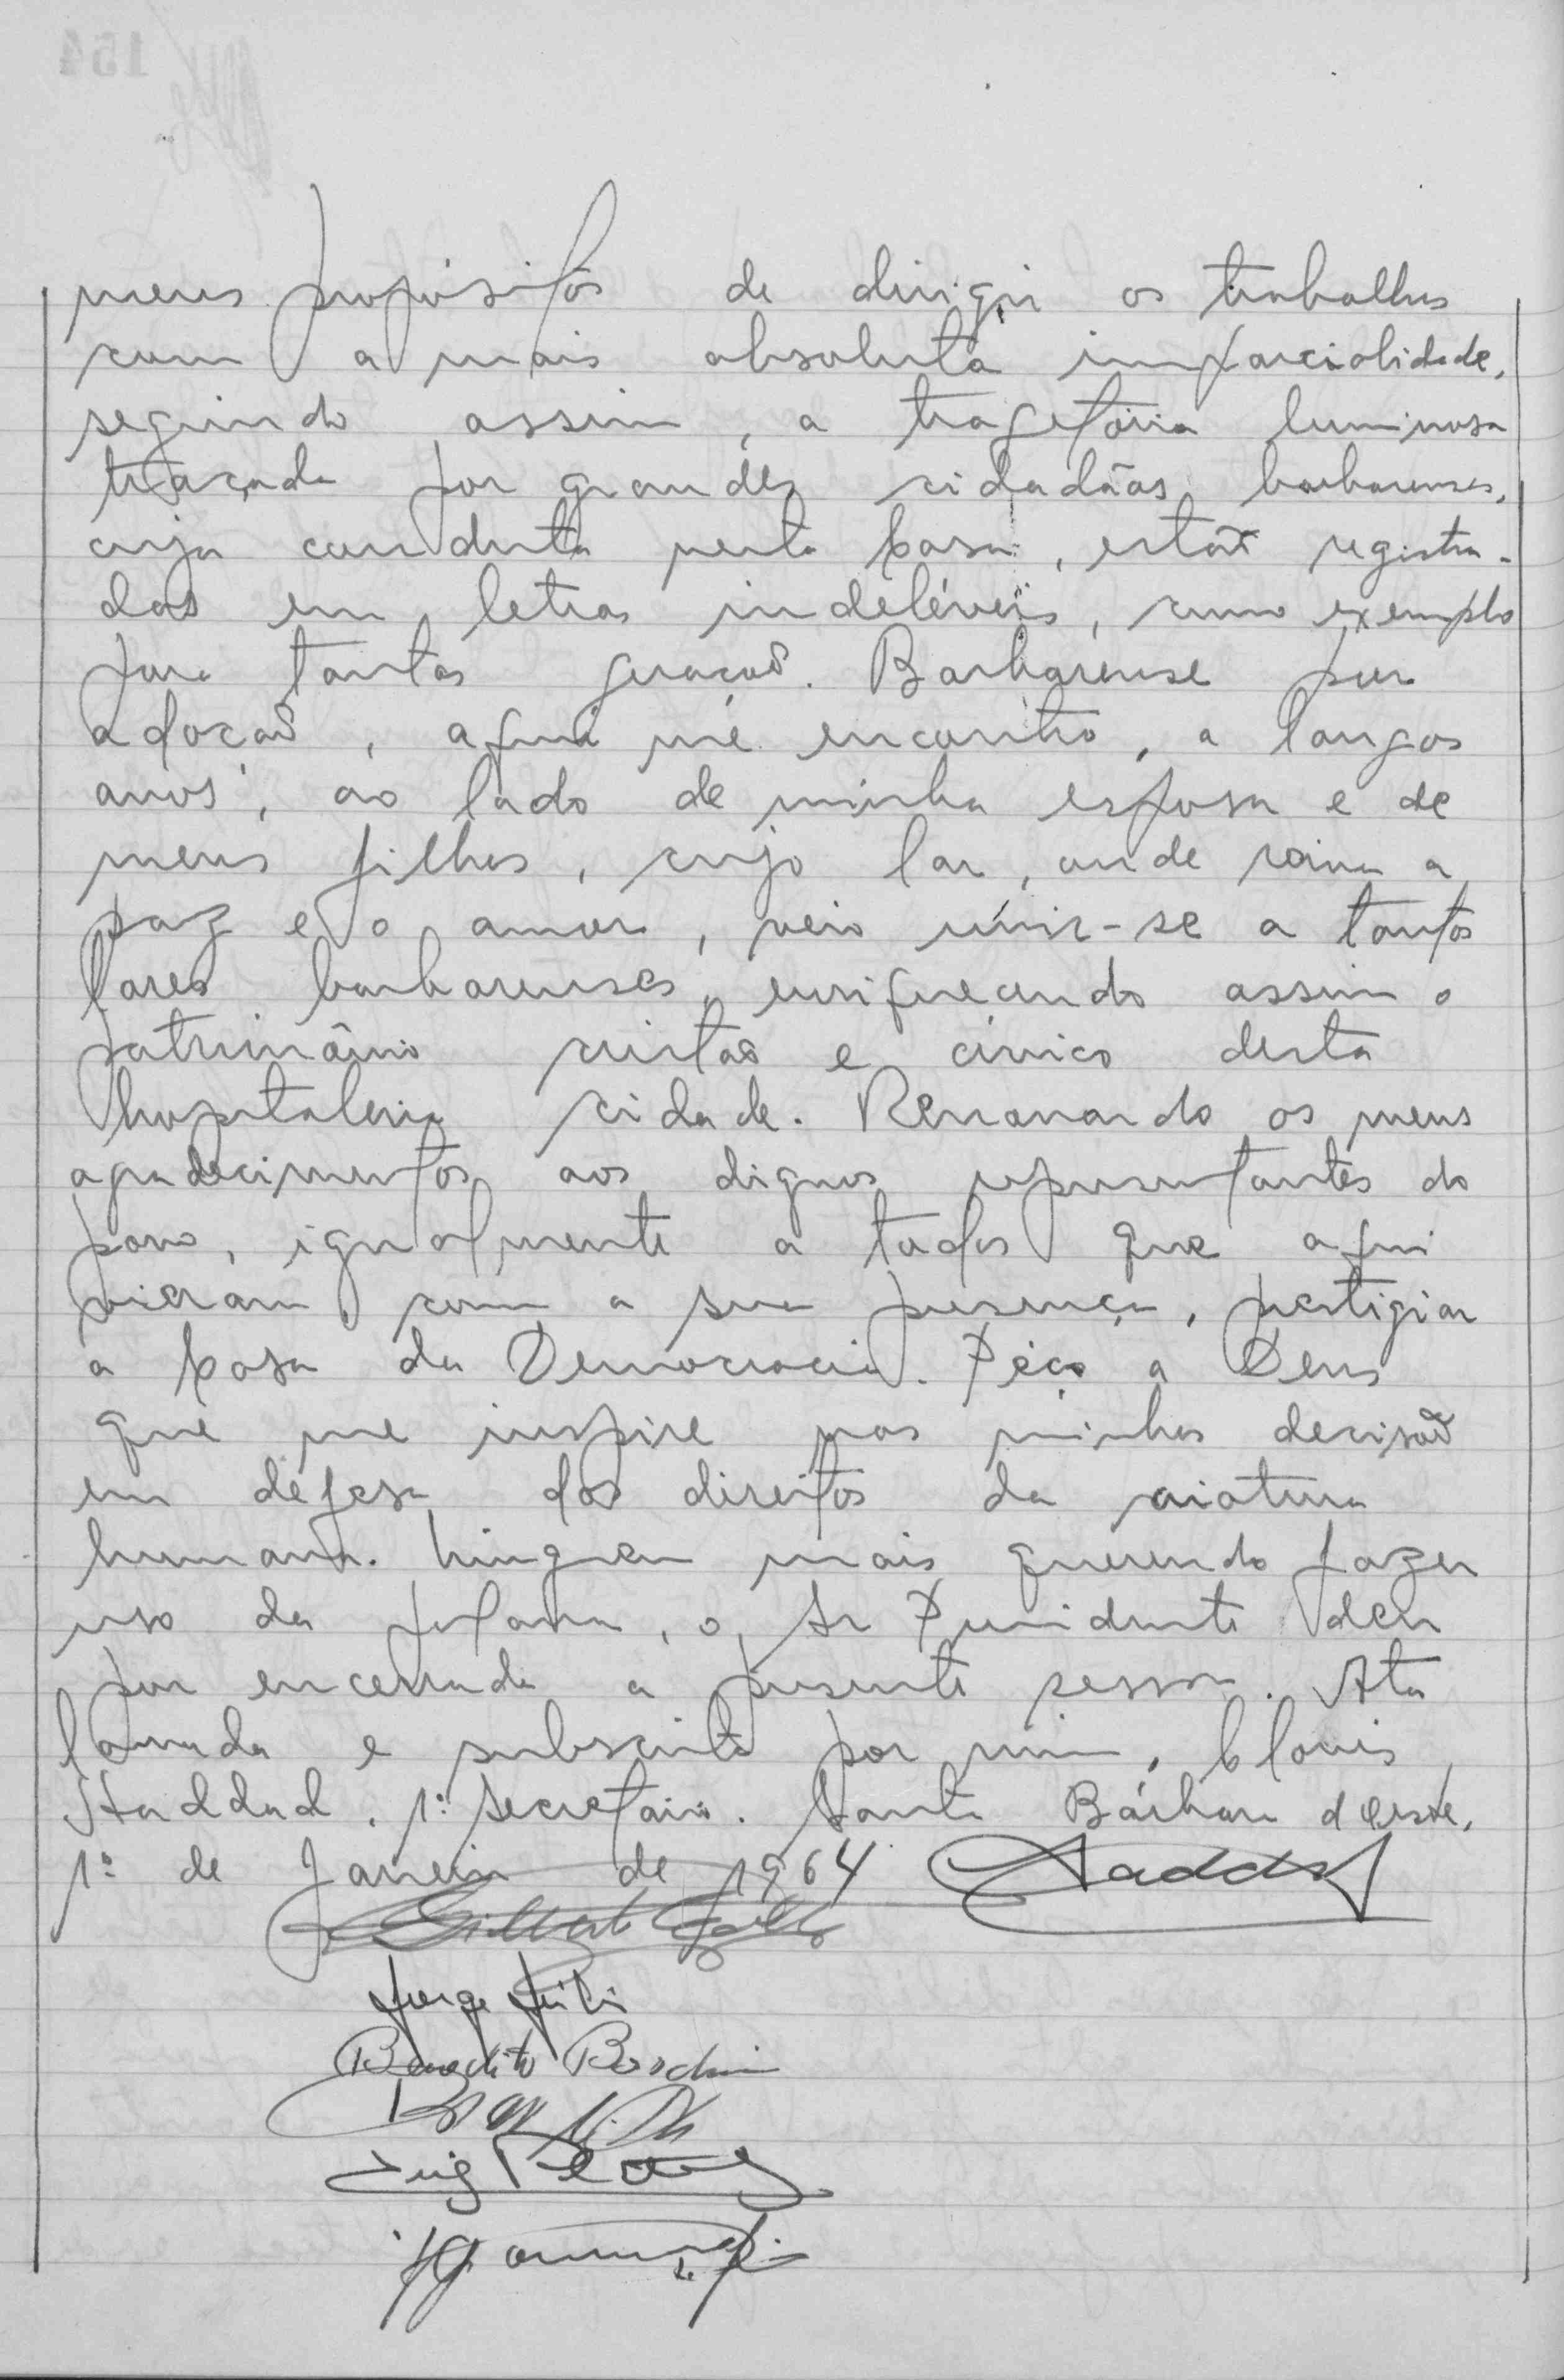 meus propósitos de dirigir os trabalhos
com a mais absoluta imparcialidade,
seguindo assim, a tragetória luminosa
traçada por grandes cidadãos barbarenses,
cuja conduta nesta Casa, estão registra-
das em letras indeléveis, como exemplo
para tantas gerações. Barbarense por
adoção, aqui me encontro, a longos
anos, ao lado de minha esposa e de
meus filhos, cujo lar, onde reina a
paz e o amor, veio unir-se a tantos
lares barbarenses, enriquecendo assim o
patrimônio cristão e cívico desta
hospitaleira cidade. Renovando os meus
agradecimentos aos dignos representantes do
povo, igualmente a todos que aqui
vieram, com a sua presença, prestigiar
a Casa da Democracia. Peço a Deus
que me inspire nas minhas decisões
em defesa dos direitos da criatura
humana. Ninguem mais querendo fazer
uso da palavra, o Sr Presidente deu
por encerrada a presente sessão. Ata
lavrada e subscrita por mim, Clovis
Haddad, 1º Secretário. Santa Bárbara d'Oeste,
1º de Janeiro de 1964 Haddad
Gilberto
Jorge
Benedito
Luiz
154